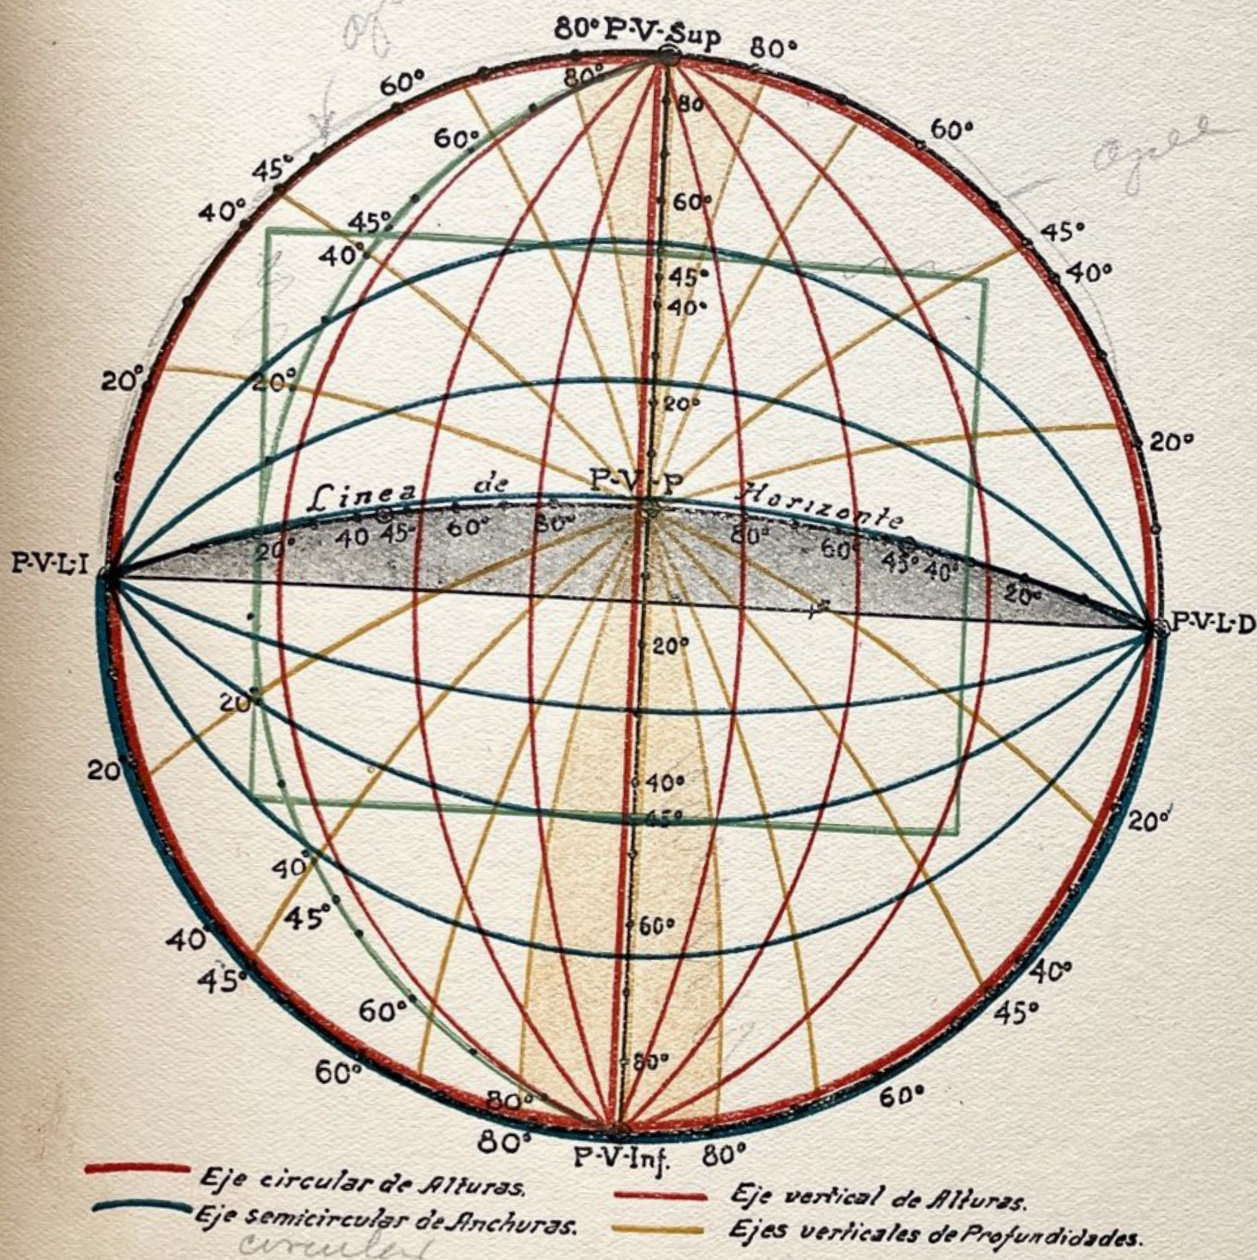 80° P-V-Sup 80°
60° 80° 80 60°
60°
45° 60°
40° 45° 45°
40° 45° 40°
40°
20° 20° 20° 20°
P-V-P
Linea de Horizonte
20° 40 45° 60° 80° 80° 60° 45° 40° 20°
P-V-L-I P-V-L-D
20°
20°
20° 40° 20°
45°
40° 60°
45°
40° 40°
45° 45°
60° 80°
60° 60°
80°
80° P-V-Inf. 80°
Eje circular de Alturas.
Eje vertical de Alturas.
Eje semicircular de Anchuras.
Ejes verticales de Profundidades.
circular